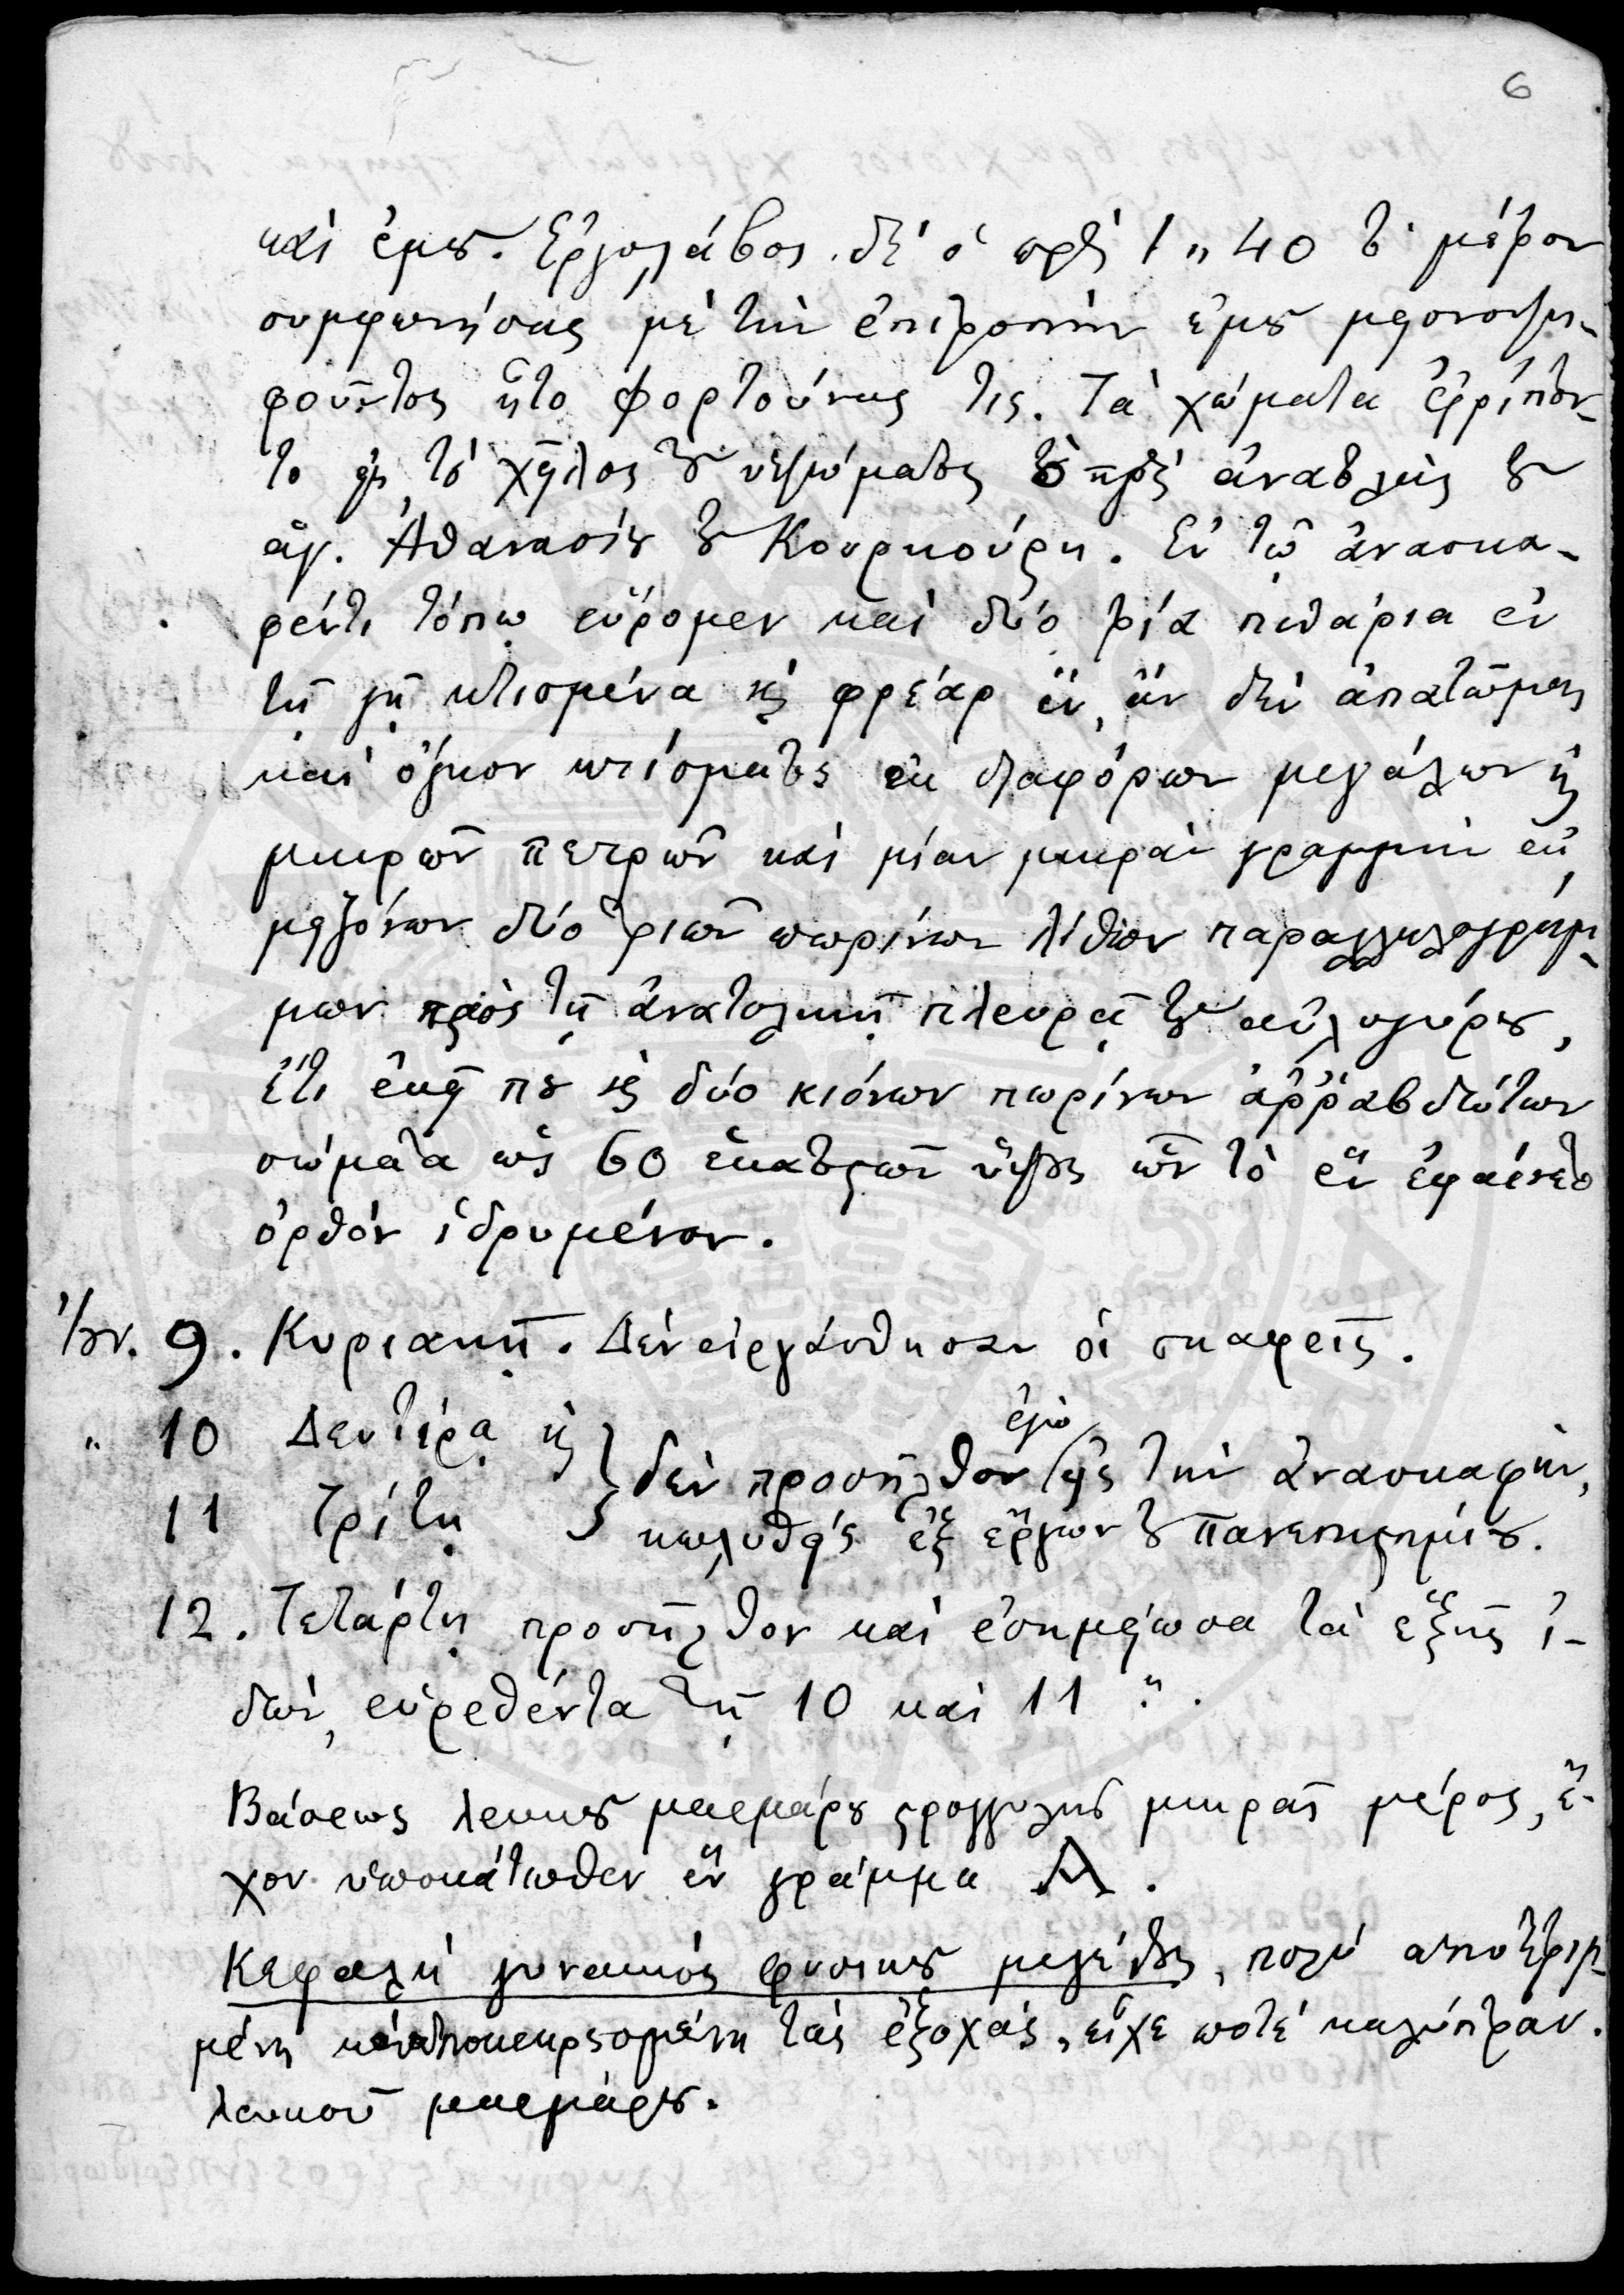 6
καὶ ἐμοῦ. Ἐργολάβος δὲ ὁ πρὸς 1,,40 τὸ μέτρον
συμφωνήσας μὲ τὴν ἐπιτροπὴν ἐμοῦ μειονοψη-
φοῦντος ἦτο Φορτούνας τις. Τὰ χώματα ἐῤῥίπτον-
το εἰς τὸ χεῖλος τοῦ ὑψώματος τὸ πρὸς ἀνατολὰς τοῦ
ἁγ. Ἀθανασίου τοῦ Κουρκούρη. Ἐν τῷ ἀνασκα-
φέντι τόπῳ εὕρομεν καὶ δύο τρία πιθάρια ἐν
τῇ γῇ κτισμένα καὶ φρέαρ ἕν, ἂν δὲν ἀπατῶμαι
καὶ ὄγκον κτίσματος ἐκ διαφόρων μεγάλων καὶ
μικρῶν πετρῶν καὶ μίαν μικρὰν γραμμὴν ἐκ
μειζόνων δύο τριῶν πωρίνων λίθων παραλληλογράμ-
μων πρὸς τῇ ἀνατολικῇ πλευρᾷ τοῦ αὐλογύρου,
ἔτι ἐκεῖ που καὶ δύο κιόνων πωρίνων ἀῤῥαβδώτων
σώματα ὡς 60 ἑκατοστῶν ὕψος ὧν τὸ ἓν ἐφαίνετο
ὀρθὸν ἱδρυμένον.
Ἰαν. 9. Κυριακῇ. Δὲν εἰργάσθησαν οἱ σκαφεῖς.
" 10 Δευτέρᾳ καὶ
11 Τρίτῃ
δὲν προσῆλθον ἐγὼ εἰς τὴν ἀνασκαφὴν,
κωλυθεὶς ἐξ ἔργων τοῦ Πανεπιστημίου.
12. Τετάρτῃ προσῆλθον καὶ ἐσημείωσα τὰ ἑξῆς ἰ-
δὼν, εὑρεθέντα τῇ 10 καὶ 11 ῃ.
Βάσεως λευκοῦ μαρμάρου στρογγυλης μικρᾶς μέρος, ἔ-
χον ὑποκάτωθεν ἓν γράμμα Α.
Κεφαλὴ γυναικὸς φυσικοῦ μεγέθους, πολὺ ἀποτετριμ-
μένη τὰς ἐξοχάς, εἶχε ποτὲ καλύπτραν.
λευκοῦ μαρμάρου.